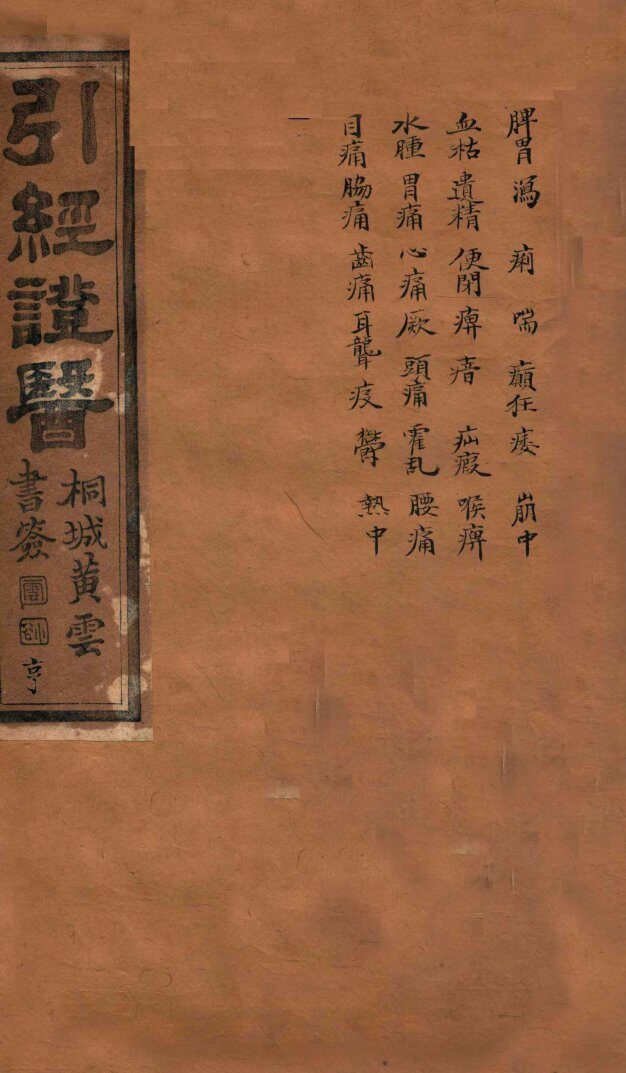 脾胃 瀉 痢 喘 癲狂 痿 崩中
血枯 遺精 便閉 痺 瘖 疝瘕 喉痺
水腫 胃痛 心痛 厥 頭痛 霍乱 腰痛
目痛 脇痛 齒痛 耳聾 疫 鬱 熱中
引經證醫
桐城黄雲
書簽
亨